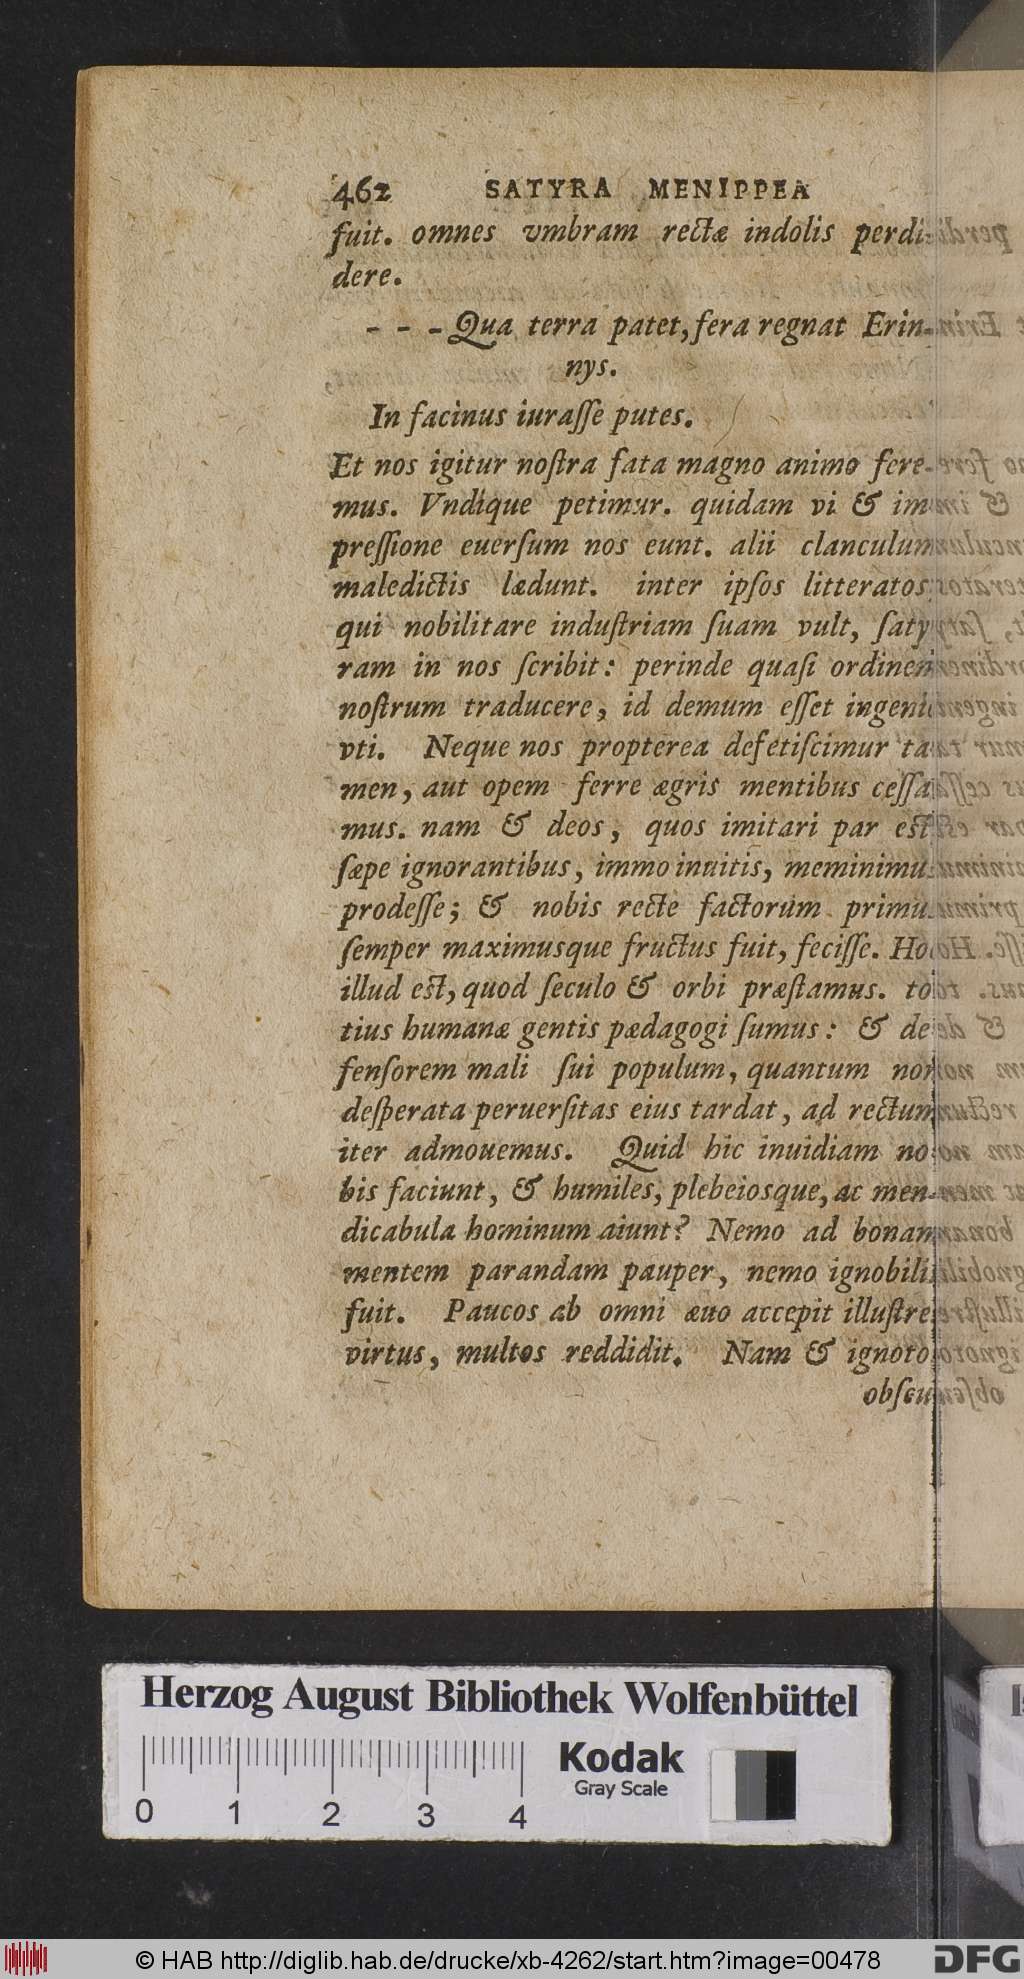 462 SATYRA MENIPPEA
fuit. omnes vmbram rectæ indolis perdi-
dere.
- - - Qua terra patet, fera regnat Erin-
nys.
In facinus iuraſſe putes.
Et nos igitur noſtra fata magno animo fere-
mus. Vndique petimur. quidam vi & im-
preſſione euerſum nos eunt. alii clanculum
maledictis lædunt. inter ipſos litteratos
qui nobilitare induſtriam ſuam vult, ſaty-
ram in nos ſcribit: perinde quaſi ordinem
noſtrum traducere, id demum eſſet ingenio
vti. Neque nos propterea defetiſcimur ta-
men, aut opem ferre ægris mentibus ceſſa-
mus. nam & deos, quos imitari par est
ſæpe ignorantibus, immo inuitis, meminimus
prodeſſe; & nobis recte factorum primus
ſemper maximusque fructus fuit, feciſſe. Hoc
illud est, quod ſeculo & orbi præſtamus. to-
tius humanæ gentis pædagogi ſumus: & de-
fenſorem mali ſui populum, quantum non
deſperata peruerſitas eius tardat, ad rectum
iter admouemus. Quid hic inuidiam no-
bis faciunt, & humiles, plebeiosque, ac men-
dicabula hominum aiunt? Nemo ad bonam
mentem parandam pauper, nemo ignobilis
fuit. Paucos ab omni æuo accepit illuſtres
virtus, multos reddidit. Nam & ignoto
obſcu-
Herzog August Bibliothek Wolfenbüttel
Kodak
Gray Scale
0 1 2 3 4
© HAB http://diglib.hab.de/drucke/xb-4262/start.htm?image=00478
DFG